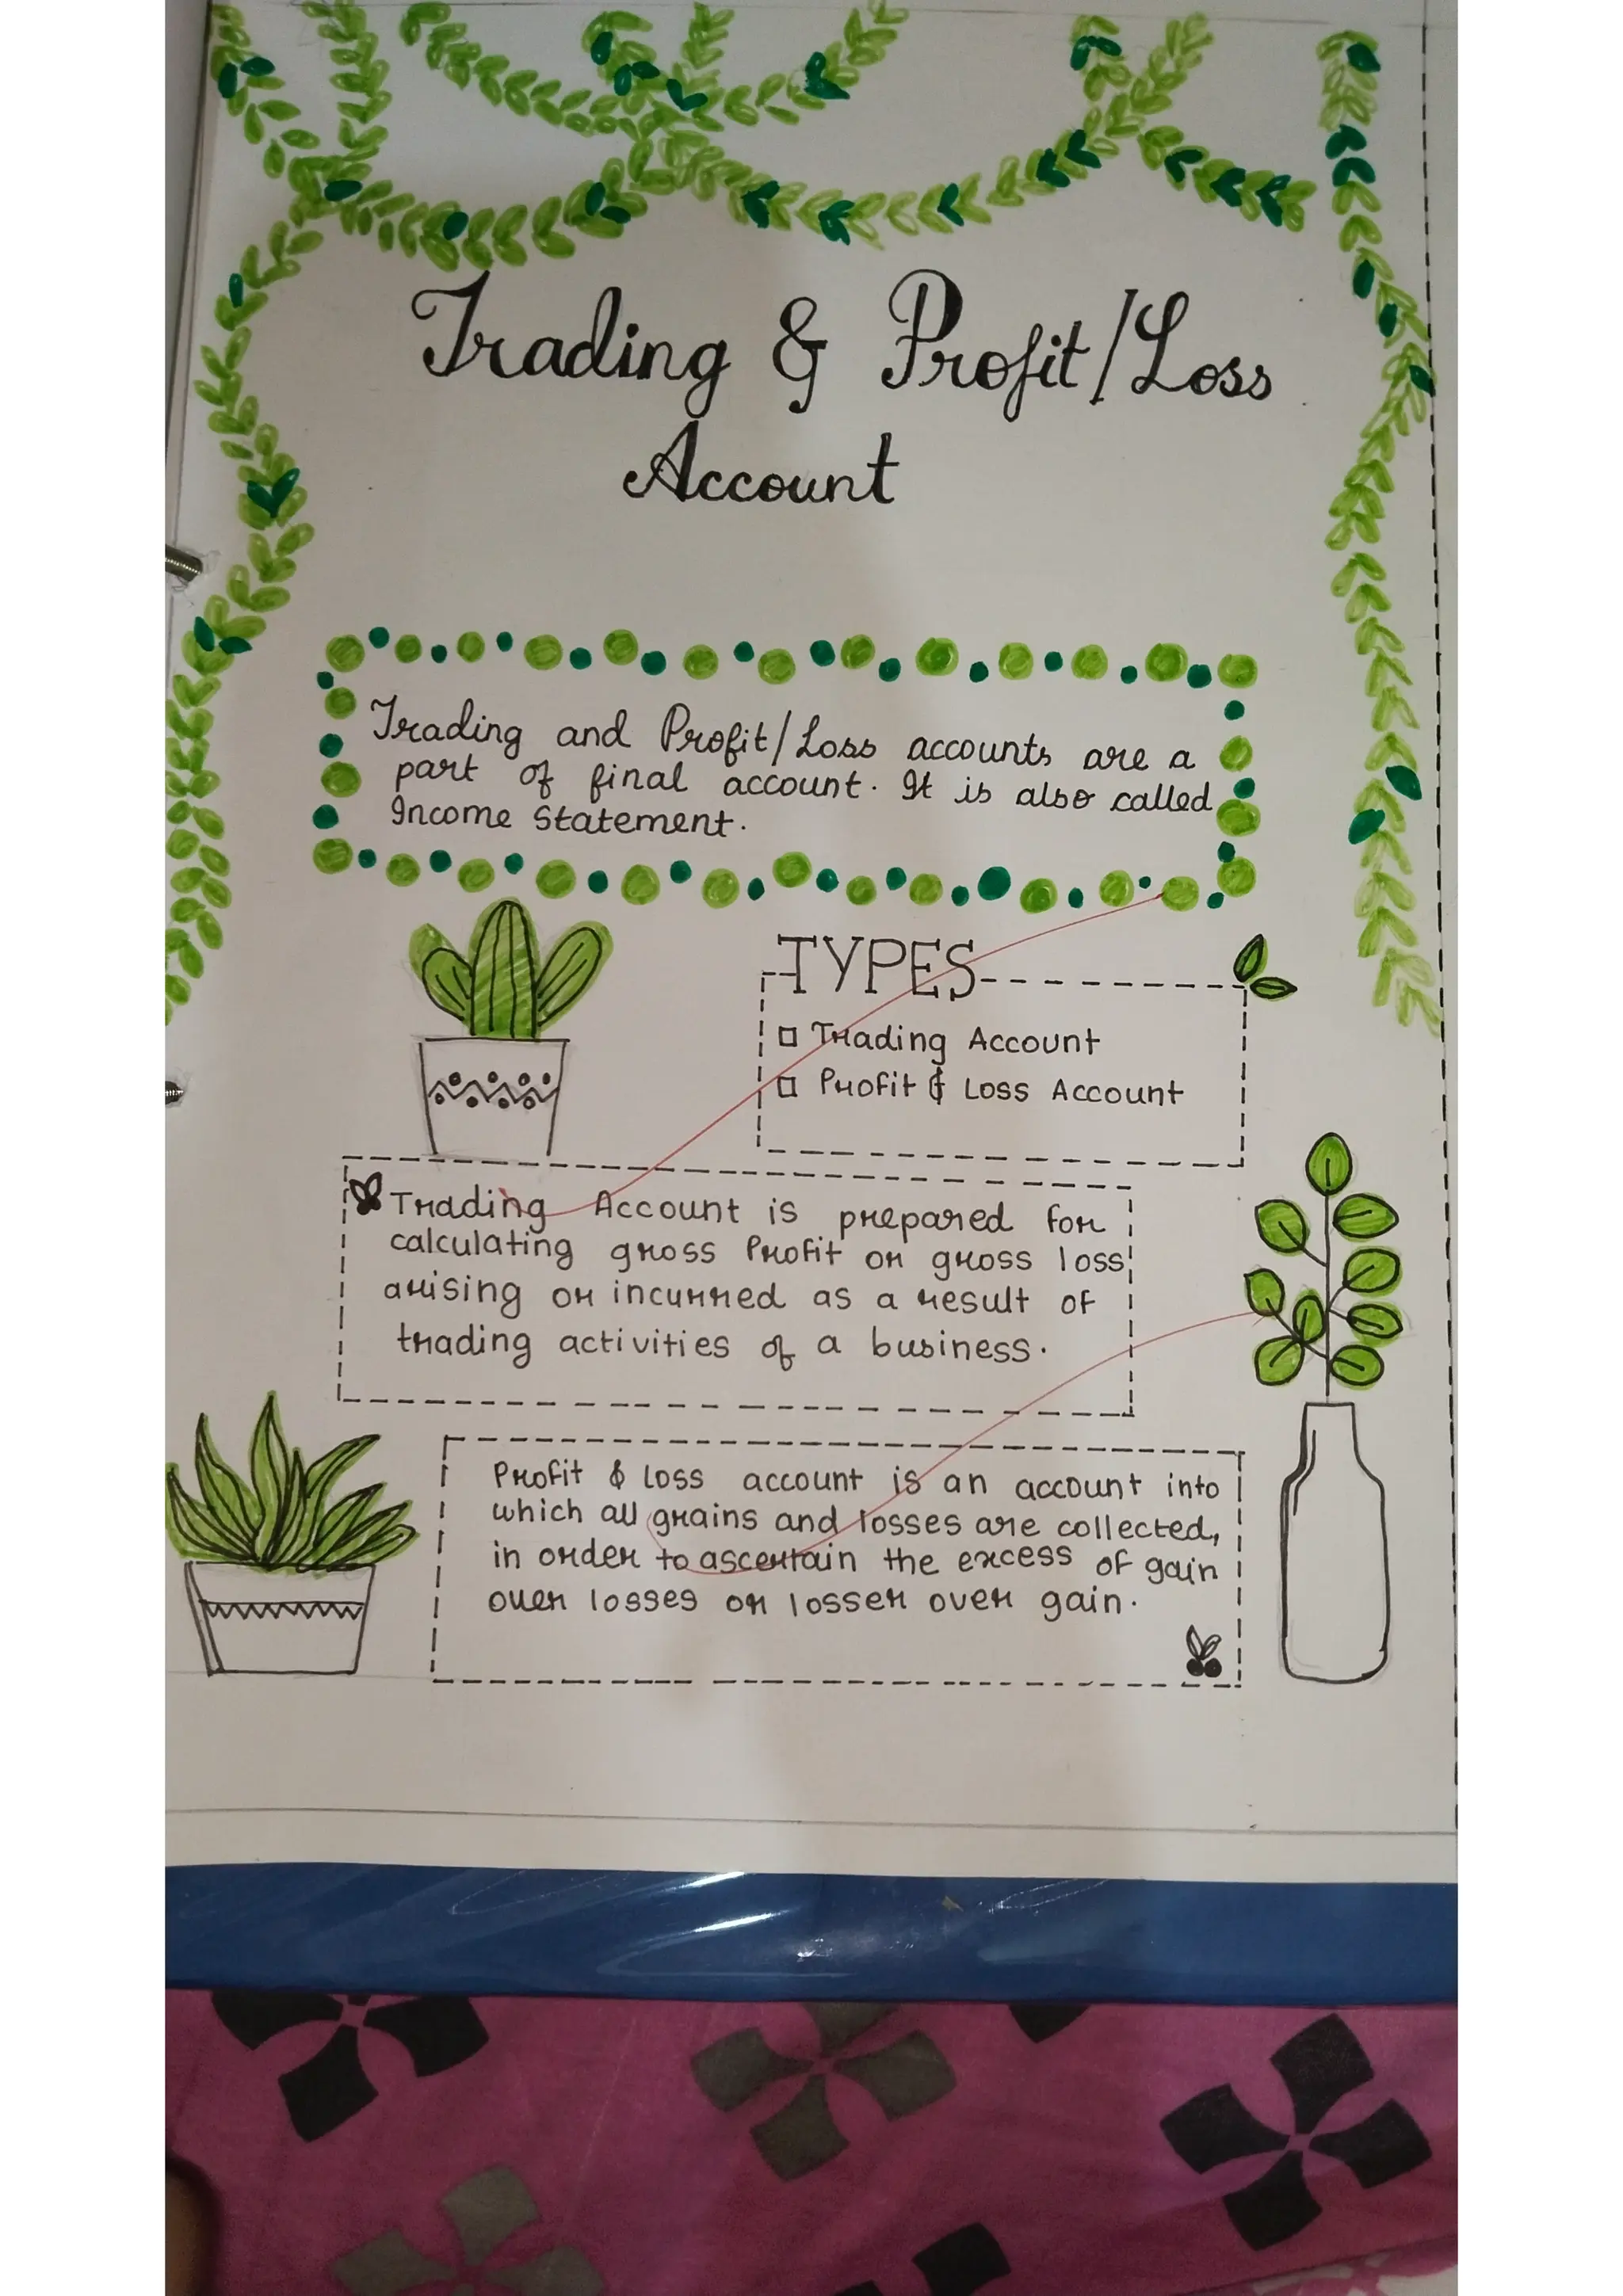 Trading & Profit/Loss
Account
Trading and Profit/Loss accounts are a
part of final account. It is also called
Income Statement.
TYPES
Trading Account
Profit & Loss Account
Trading Account is prepared for
calculating gross Profit or gross loss
arising or incurred as a result of
trading activities of a business.
Profit & Loss account is an account into
which all grains and losses are collected,
in order to ascertain the excess of gain
over losses or losser over gain.